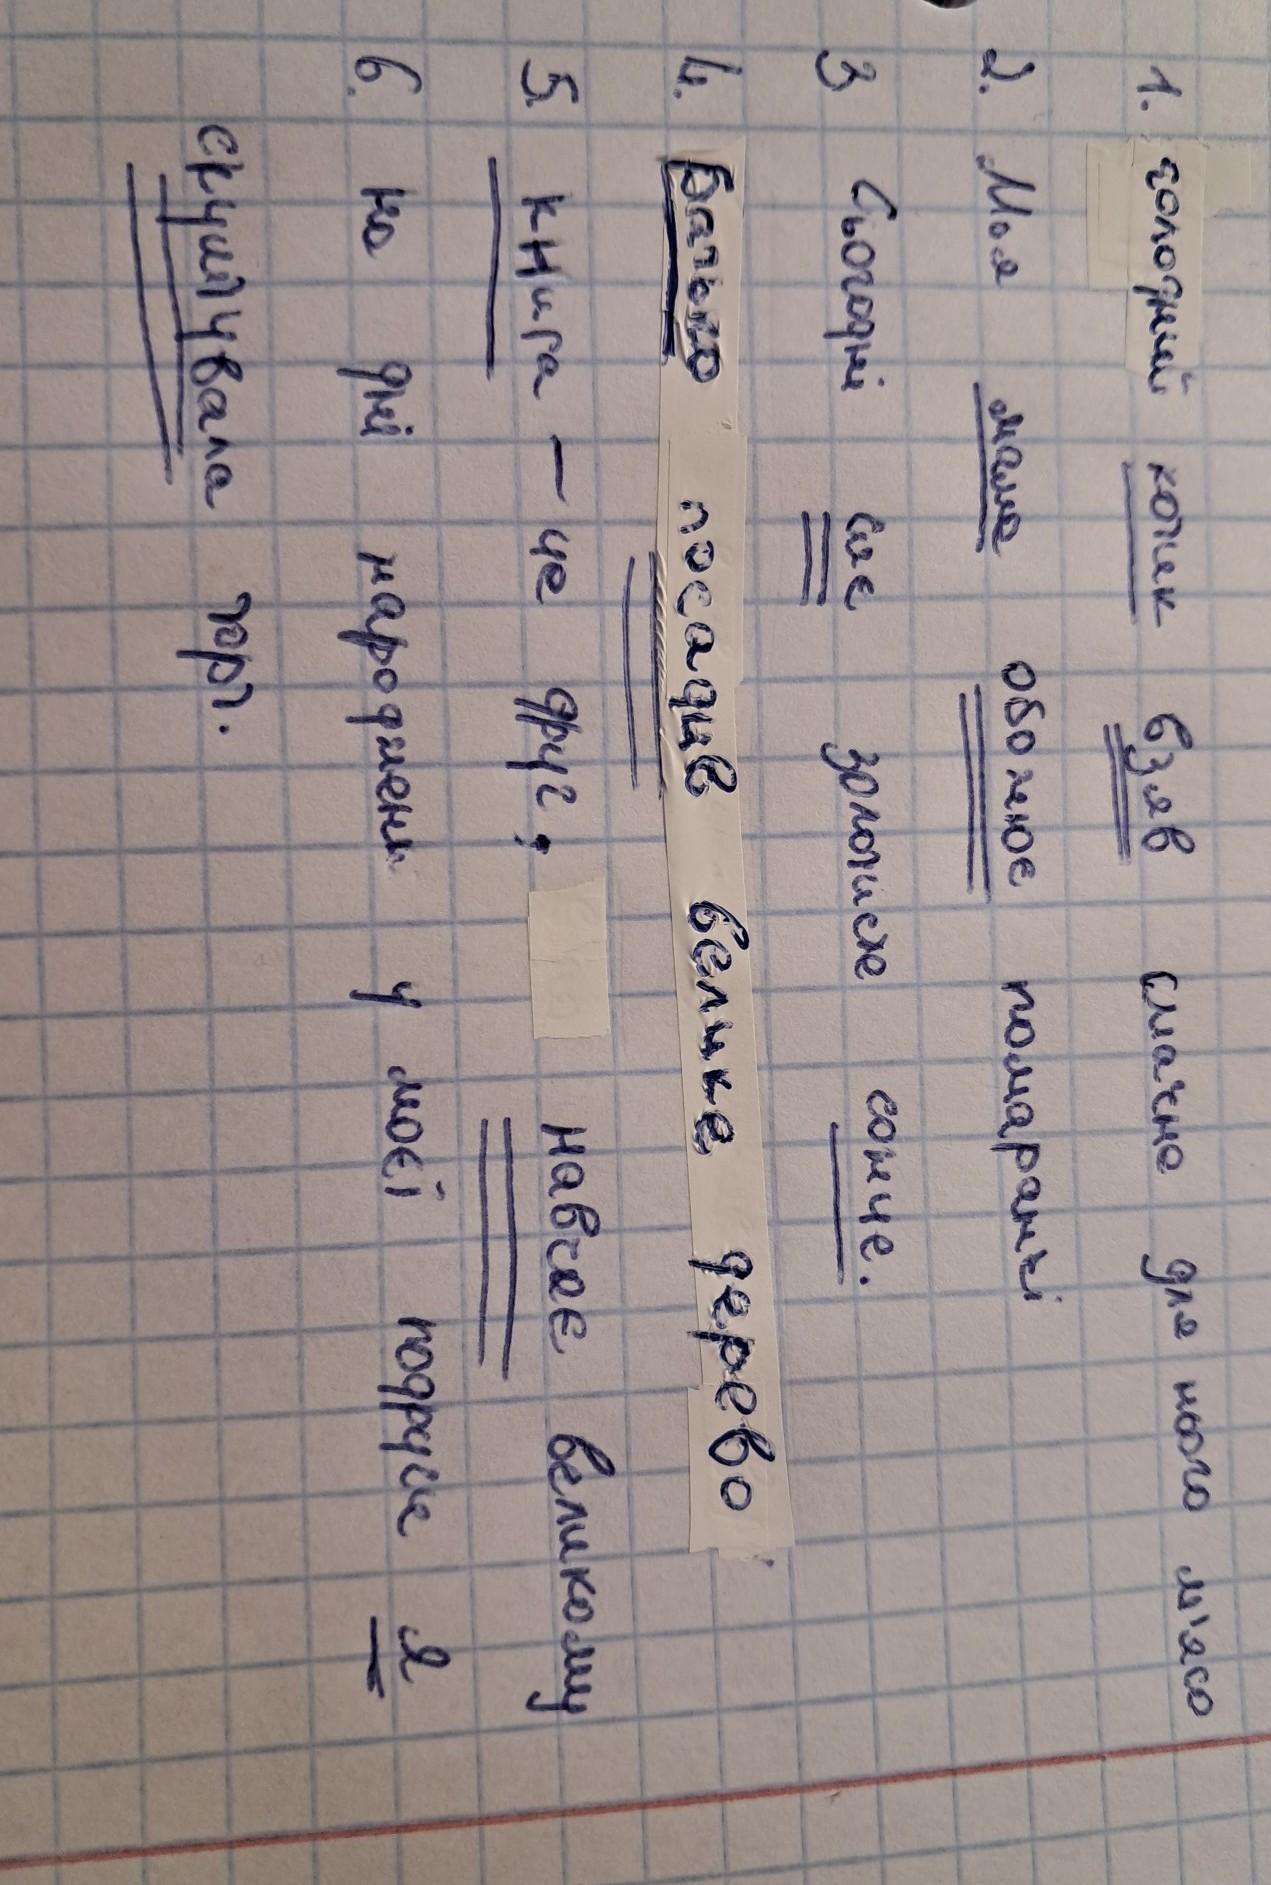 1. голодний котик взяв смачне для нього м'ясо
2. Моя мама обожнює помаранчі
3 Сьогодні сяє золотисте сонце.
4. Батько посадив велике дерево
5. книга – це друг, навчає великому
6. на дні народжені у моєї подруги я
скуштувала торт.